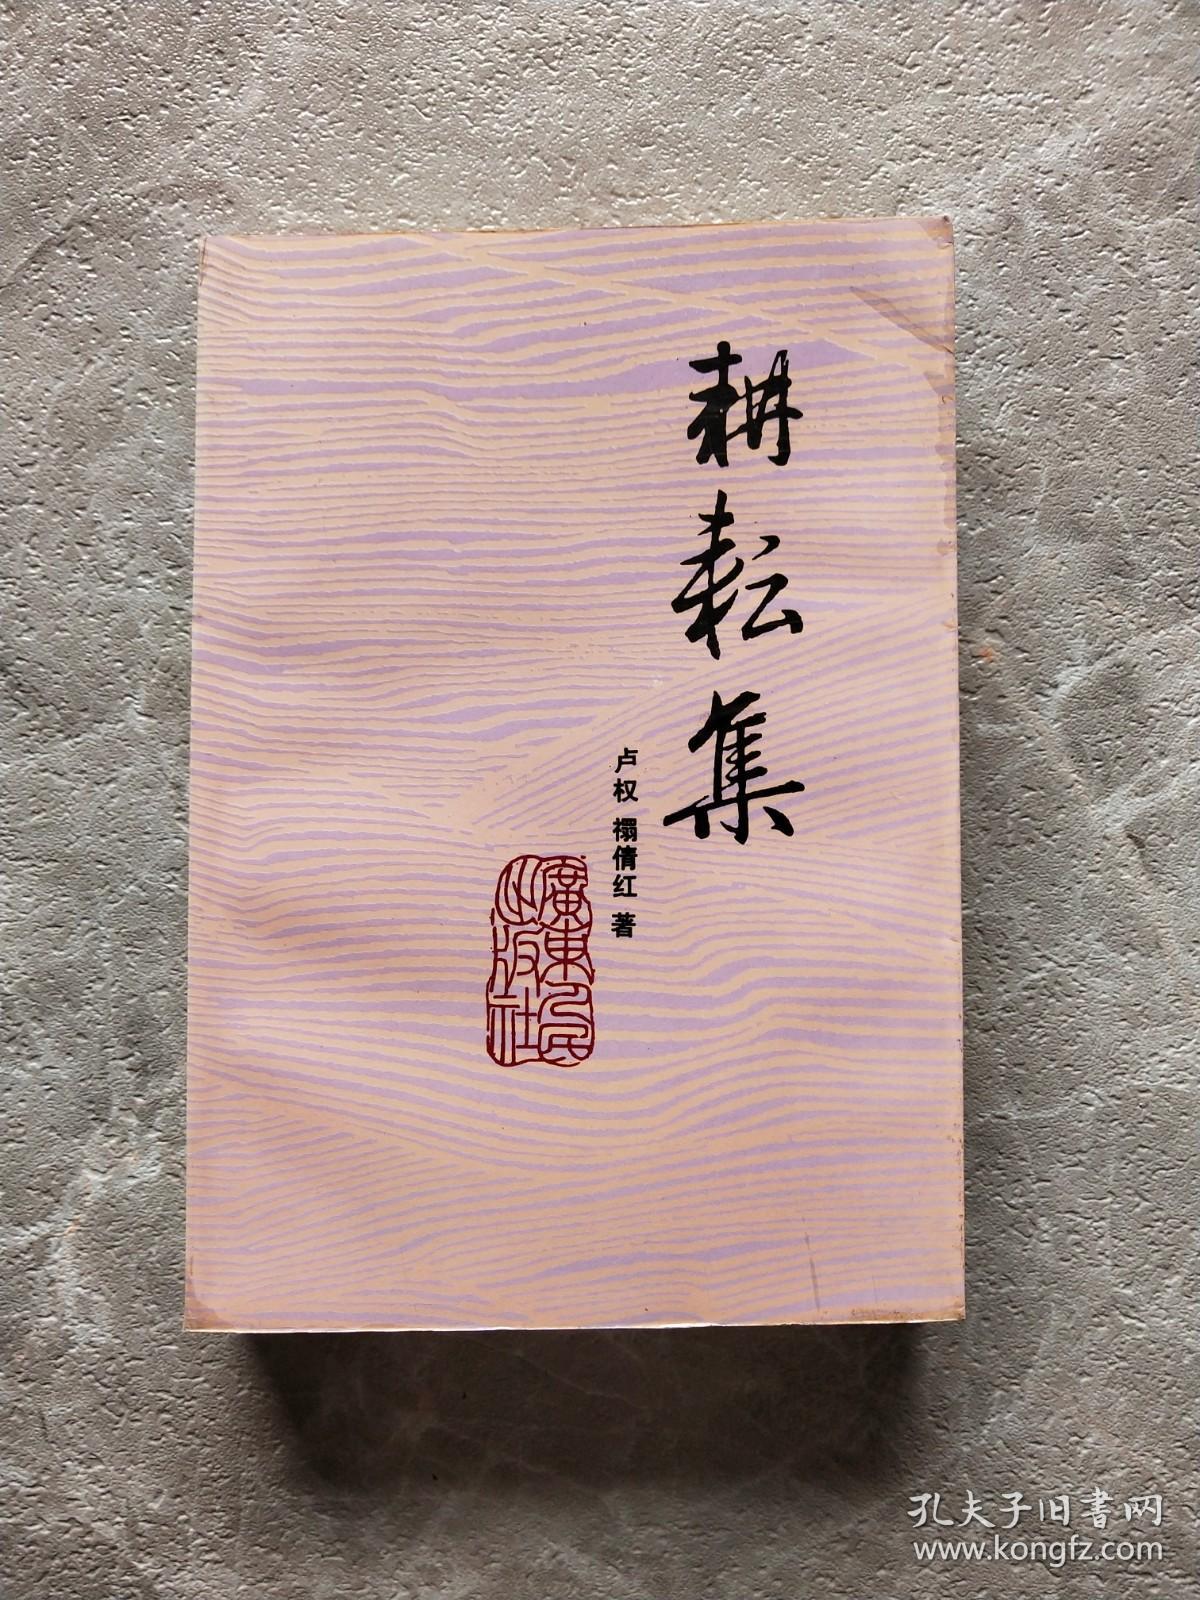 耕耘集
卢权 禤倩红 著
廣東人民
出版社
孔夫子旧書网
www.kongfz.com